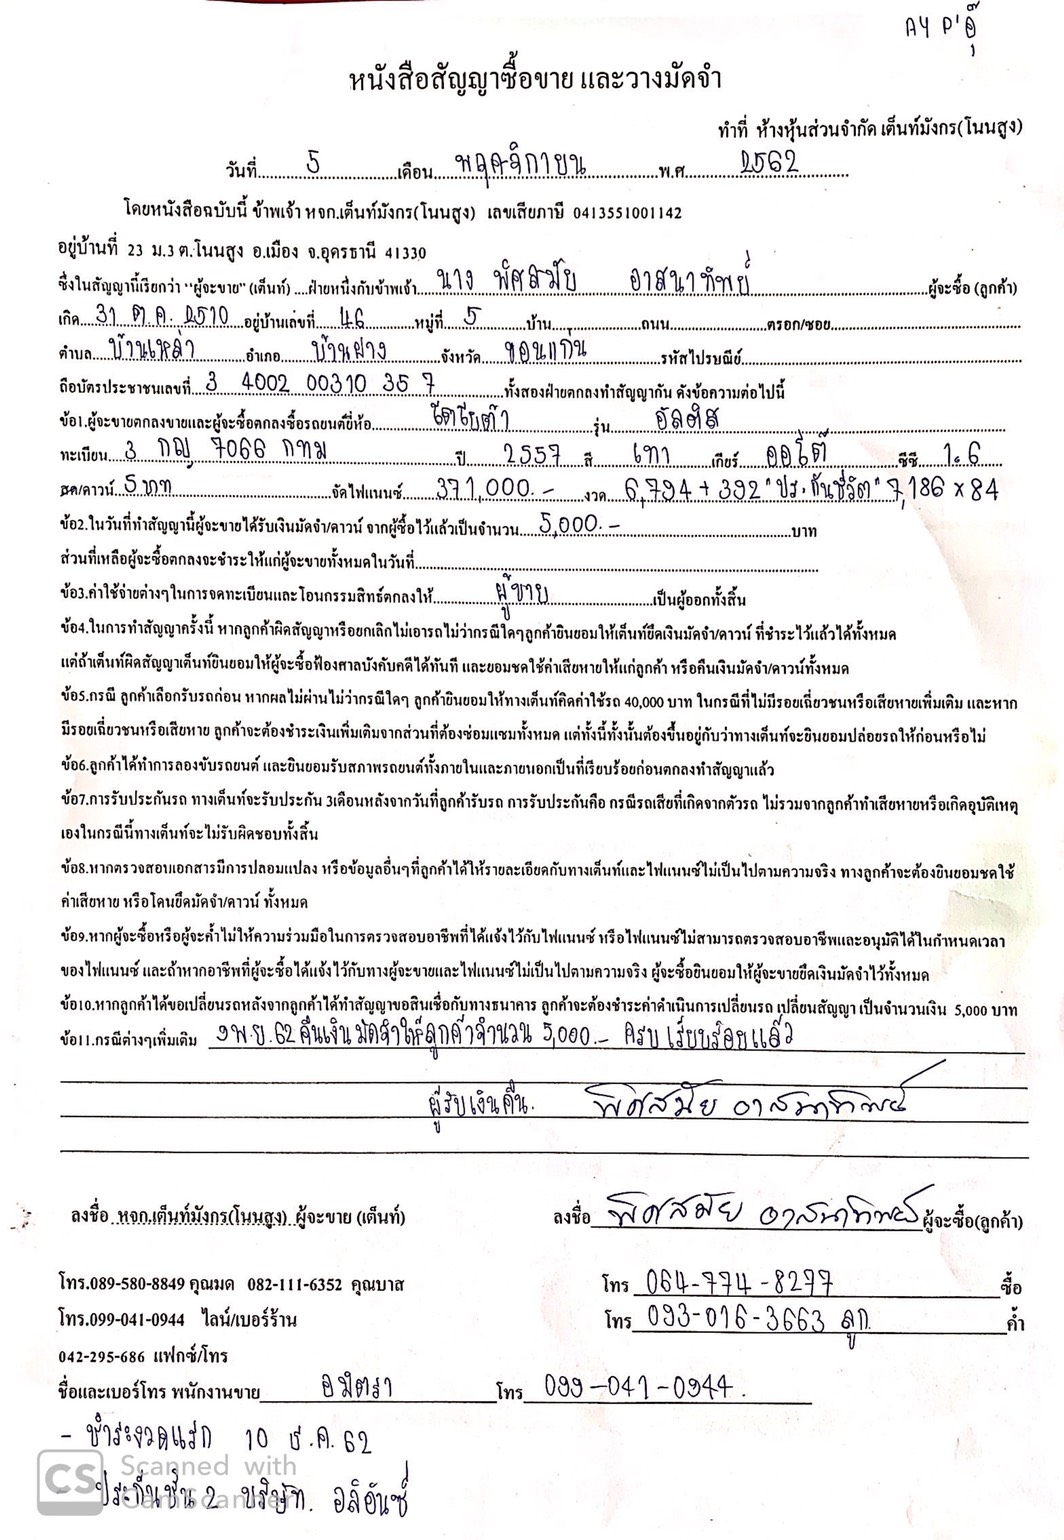 AY P'อุ๊
หนังสือสัญญาซื้อขาย และวางมัดจำ
ทำที่ ห้างหุ้นส่วนจำกัด เต็นท์มังกร(โนนสูง)
วันที่....5....เดือน....พฤศจิกายน....พ.ศ....2562....
โดยหนังสือฉบับนี้ ข้าพเจ้า หจก.เต็นท์มังกร(โนนสูง) เลขเสียภาษี 0413551001142
อยู่บ้านที่ 23 ม.3 ต.โนนสูง อ.เมือง จ.อุดรธานี 41330
ซึ่งในสัญญานี้เรียกว่า "ผู้จะขาย" (เต็นท์) ....ฝ่ายหนึ่งกับข้าพเจ้า....นาง พิศสมัย อาสนาทิพย์....ผู้จะซื้อ (ลูกค้า)
เกิด...31 ต.ค. 2510 อยู่บ้านเลขที่...46...หมู่ที่...5...บ้าน...ถนน...ตรอก/ซอย...
ตำบล...บ้านเหล่า...อำเภอ...บ้านฝาง...จังหวัด...ขอนแก่น...รหัสไปรษณีย์...
ถือบัตรประชาชนเลขที่...3 4002 00310 35 7...ทั้งสองฝ่ายตกลงทำสัญญากัน ดังข้อความต่อไปนี้
ข้อ1.ผู้จะขายตกลงขายและผู้จะซื้อตกลงซื้อรถยนต์ยี่ห้อ...โตโยต้า...รุ่น...อัลติส...
ทะเบียน...3 กญ 7066 กทม...ปี...2557...สี...เทา...เกียร์...ออโต้...ซีซี...1.6...
สด/ดาวน์...5 บาท...จัดไฟแนนซ์...371,000.-...งวด...6,794 + 392 "ประกันชีวิต" 7,186 x 84
ข้อ2.ในวันที่ทำสัญญานี้ผู้จะขายได้รับเงินมัดจำ/ดาวน์ จากผู้ซื้อไว้แล้วเป็นจำนวน...5,000.-...บาท
ส่วนที่เหลือผู้จะซื้อตกลงจะชำระให้แก่ผู้จะขายทั้งหมดในวันที่...
ข้อ3.ค่าใช้จ่ายต่างๆในการจดทะเบียนและโอนกรรมสิทธ์ตกลงให้...ผู้ขาย...เป็นผู้ออกทั้งสิ้น
ข้อ4.ในการทำสัญญาครั้งนี้ หากลูกค้าผิดสัญญาหรือยกเลิกไม่เอารถไม่ว่ากรณีใดๆลูกค้ายินยอมให้เต็นท์ยึดเงินมัดจำ/ดาวน์ ที่ชำระไว้แล้วได้ทั้งหมด
แต่ถ้าเต็นท์ผิดสัญญาเต็นท์ยินยอมให้ผู้จะซื้อฟ้องศาลบังคับคดีได้ทันที และยอมชดใช้ค่าเสียหายให้แก่ลูกค้า หรือคืนเงินมัดจำ/ดาวน์ทั้งหมด
ข้อ5.กรณี ลูกค้าเลือกรับรถก่อน หากผลไม่ผ่านไม่ว่ากรณีใดๆ ลูกค้ายินยอมให้ทางเต็นท์คิดค่าใช้รถ 40,000 บาท ในกรณีที่ไม่มีรอยเฉี่ยวชนหรือเสียหายเพิ่มเติม และหาก
มีรอยเฉี่ยวชนหรือเสียหาย ลูกค้าจะต้องชำระเงินเพิ่มเติมจากส่วนที่ต้องซ่อมแซมทั้งหมด แต่ทั้งนี้ทั้งนั้นต้องขึ้นอยู่กับว่าทางเต็นท์จะยินยอมปล่อยรถให้ก่อนหรือไม่
ข้อ6.ลูกค้าได้ทำการลองขับรถยนต์ และยินยอมรับสภาพรถยนต์ทั้งภายในและภายนอกเป็นที่เรียบร้อยก่อนตกลงทำสัญญาแล้ว
ข้อ7.การรับประกันรถ ทางเต็นท์จะรับประกัน 3เดือนหลังจากวันที่ลูกค้ารับรถ การรับประกันคือ กรณีรถเสียที่เกิดจากตัวรถ ไม่รวมจากลูกค้าทำเสียหายหรือเกิดอุบัติเหตุ
เองในกรณีนี้ทางเต็นท์จะไม่รับผิดชอบทั้งสิ้น
ข้อ8.หากตรวจสอบเอกสารมีการปลอมแปลง หรือข้อมูลอื่นๆที่ลูกค้าได้ให้รายละเอียดกับทางเต็นท์และไฟแนนซ์ไม่เป็นไปตามความจริง ทางลูกค้าจะต้องยินยอมชดใช้
ค่าเสียหาย หรือโดนยึดมัดจำ/ดาวน์ ทั้งหมด
ข้อ9.หากผู้จะซื้อหรือผู้จะค้ำไม่ให้ความร่วมมือในการตรวจสอบอาชีพที่ได้แจ้งไว้กับไฟแนนซ์ หรือไฟแนนซ์ไม่สามารถตรวจสอบอาชีพและอนุมัติได้ในกำหนดเวลา
ของไฟแนนซ์ และถ้าหากอาชีพที่ผู้จะซื้อได้แจ้งไว้กับทางผู้จะขายและไฟแนนซ์ไม่เป็นไปตามความจริง ผู้จะซื้อยินยอมให้ผู้จะขายยึดเงินมัดจำไว้ทั้งหมด
ข้อ10.หากลูกค้าได้ขอเปลี่ยนรถหลังจากลูกค้าได้ทำสัญญาขอสินเชื่อกับทางธนาคาร ลูกค้าจะต้องชำระค่าดำเนินการเปลี่ยนรถ เปลี่ยนสัญญา เป็นจำนวนเงิน 5,000 บาท
ข้อ11.กรณีต่างๆเพิ่มเติม 9 พ.ย. 62 คืนเงินมัดจำให้ลูกค้าจำนวน 5,000.- ครบเรียบร้อยแล้ว
ผู้รับเงินคืน. พิศสมัย อาสนาทิพย์
ลงชื่อ หจก.เต็นท์มังกร(โนนสูง) ผู้จะขาย (เต็นท์) ลงชื่อ พิศสมัย อาสนาทิพย์ ผู้จะซื้อ(ลูกค้า)
โทร.089-580-8849 คุณมด 082-111-6352 คุณบาส โทร 064-774-8277 ซื้อ
โทร.099-041-0944 ไลน์/เบอร์ร้าน โทร 093-016-3663 ลูก ค้ำ
042-295-686 แฟกซ์/โทร
ชื่อและเบอร์โทร พนักงานขาย อมิตรา โทร 099-041-0944.
- ชำระงวดแรก 10 ธ.ค. 62
CS Scanned with
CamScanner
ประกันชั้น 2 บริษัท. อลิอันซ์